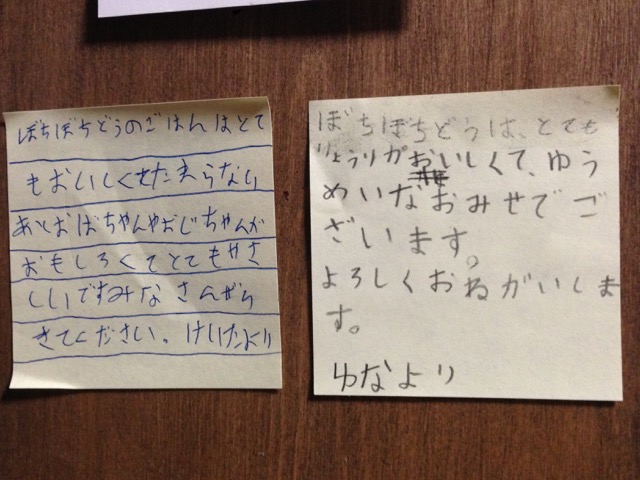 ぼちぼちどうのごはんはとて
もおいしくてたまらない
あとおばちゃんやおじちゃんが
おもしろくてとてもやさ
しいですみなさんがら
きてください。けいたより
ぼちぼちどうは、とても
りょうりがおいしくて、ゆう
めいなおみせでご
ざいます。
よろしくおねがいしま
す。
ゆなより